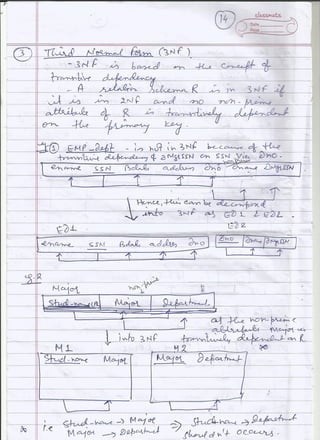 14
classmate
Date
Page
③ Third Normal form (3NF)
- 3NF is based on the concept of
transitive dependency
- A relation schema R is in 3NF if
it is in 2NF and no non-prime
attribute of R is transitively dependent
on the primary key.
① EMP_dept - is not in 3NF because of the
transitive dependency of DMgrSSN on SSN via Dno.
ename SSN Bdate address dno dname DmgrSSN
Hence, this can be decomposed
into 3NF as ED1 & ED2.
ED1 ED2
ename SSN Bdate address dno Dno Dname DmgrSSN
eg. 2
Major non prime
Stud-name Major Department
as the non-prime
attribute major is
into 3NF transitively dependent on R
M1 M2
Stud-name Major Major Department
i.e Stud-name → Major ⇒ Studname → Department
Major → Department shouldn't occurs.